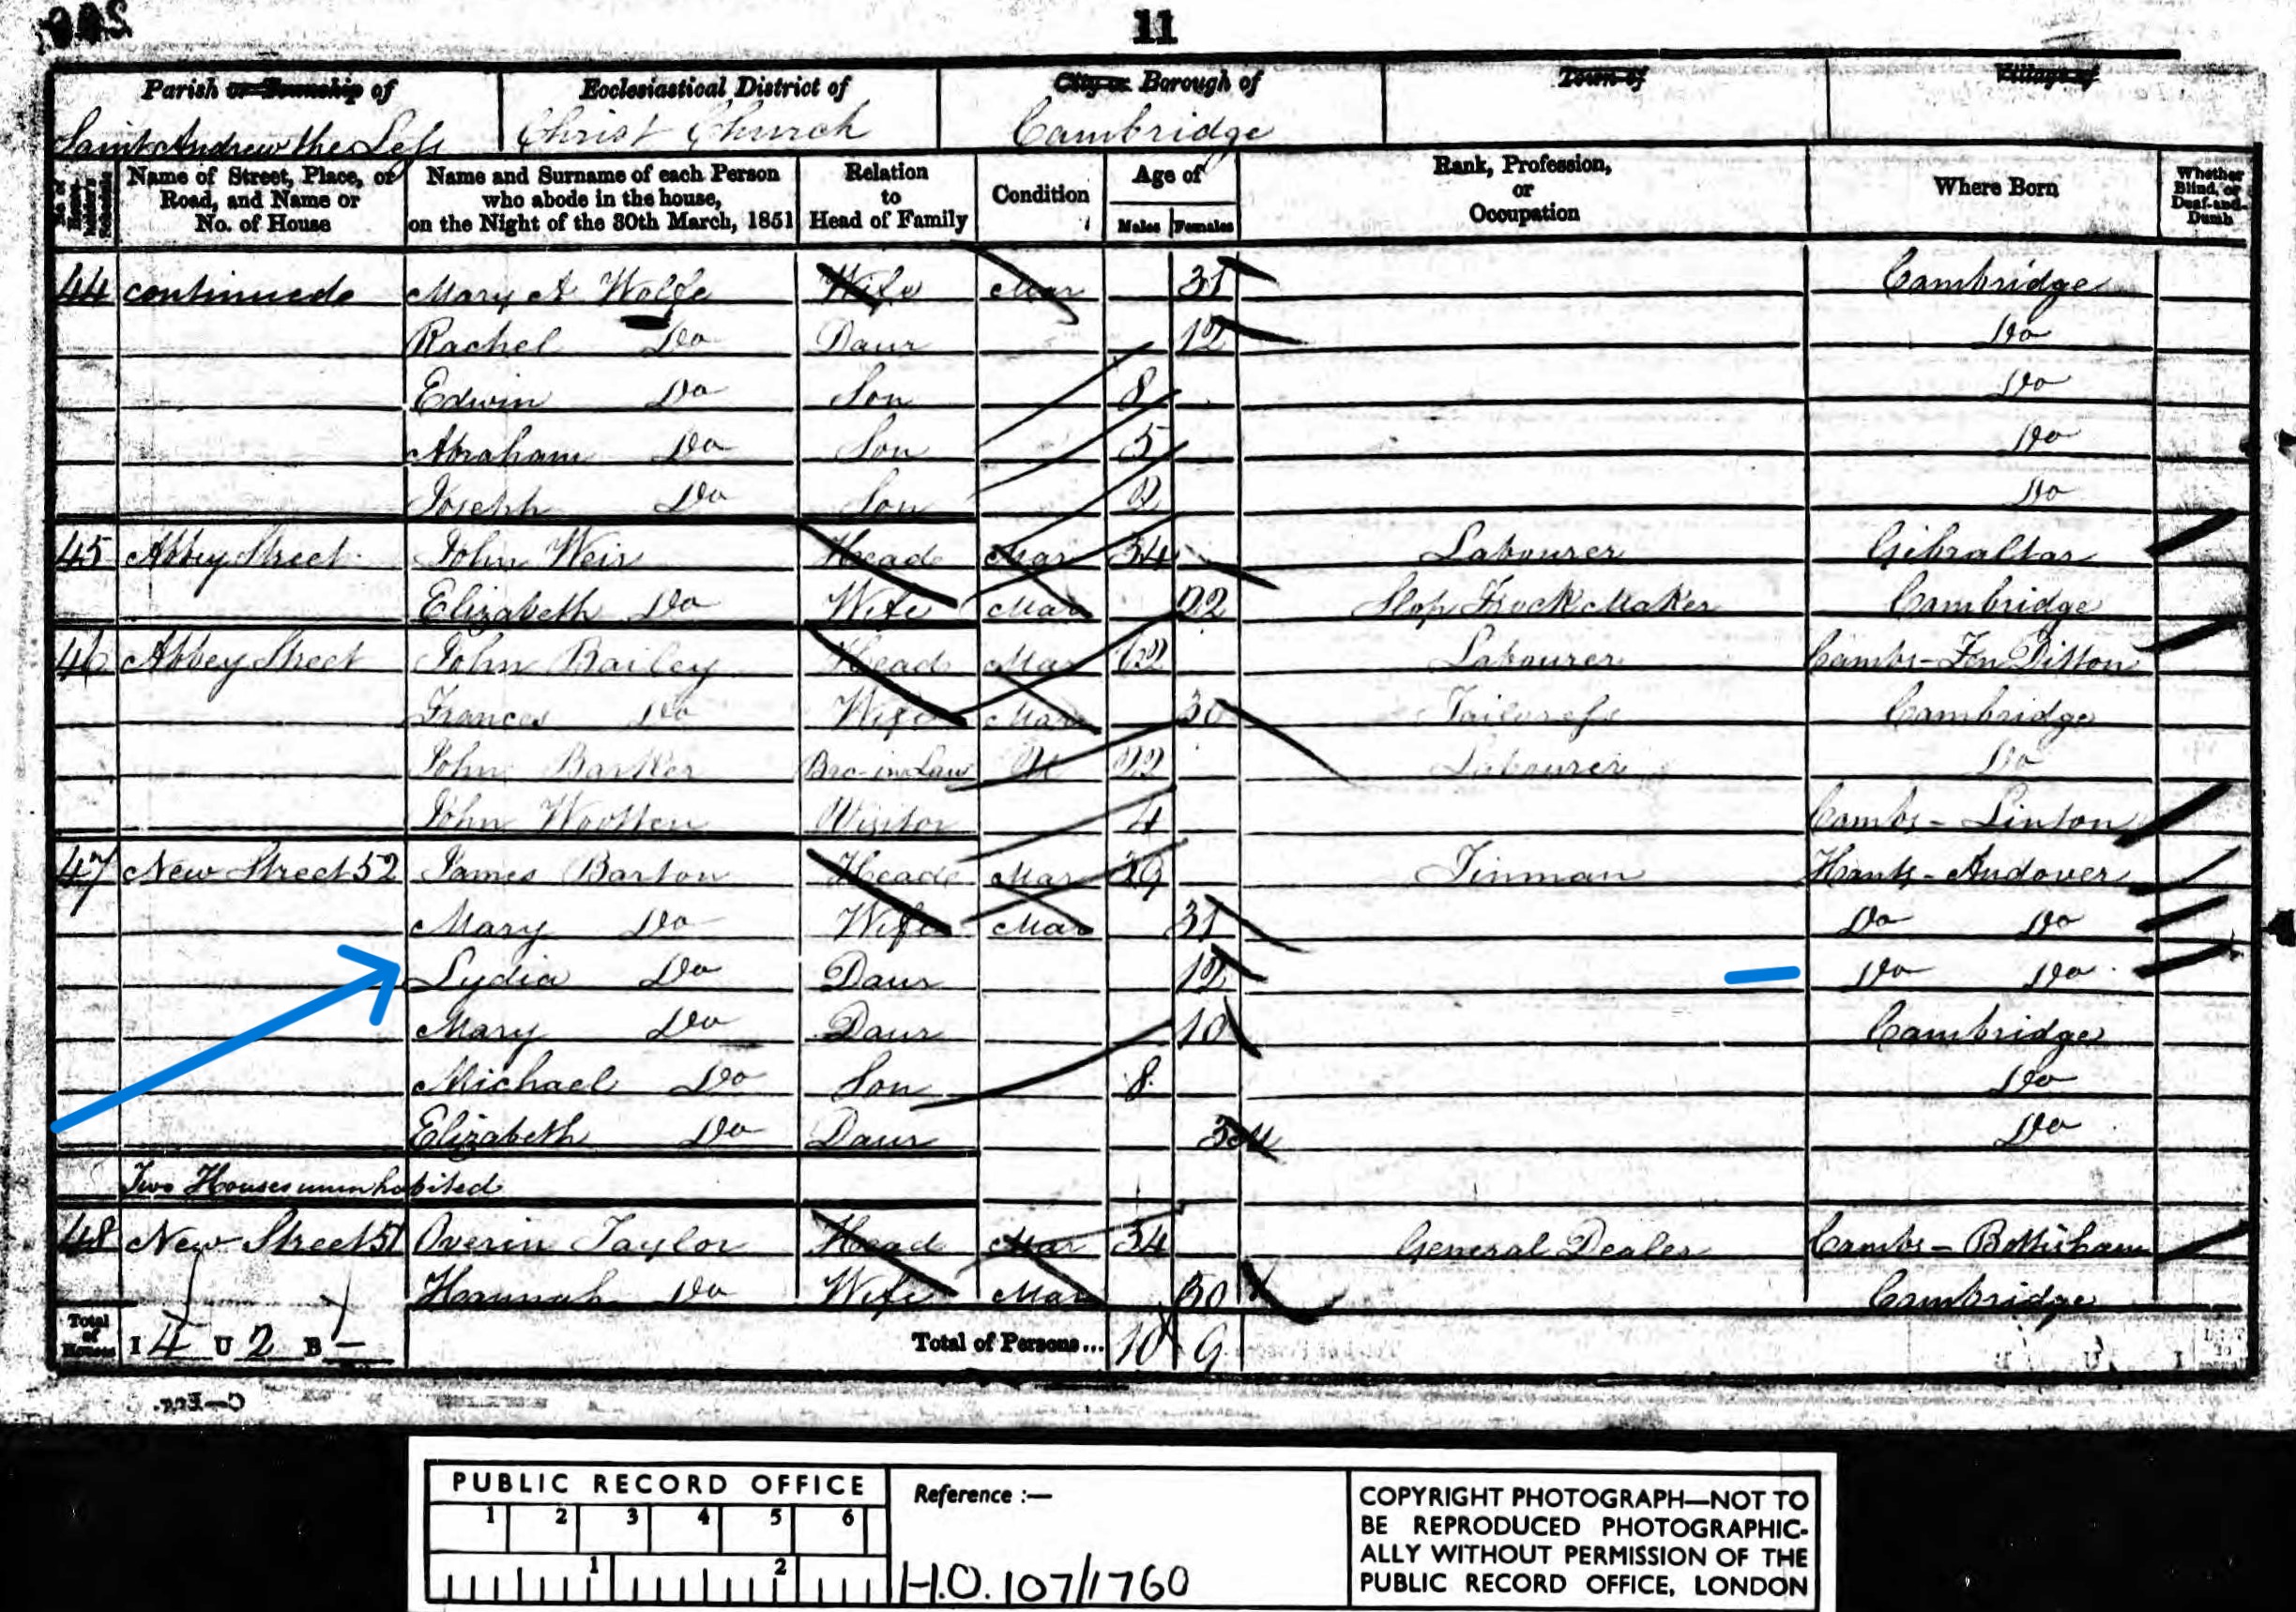 11
Parish or Township of Ecclesiastical District of City or Borough of Town of Village of
Saint Andrew the Less Christ Church Cambridge
No. of House-holder's Schedule Name of Street, Place, or Road, and Name or No. of House Name and Surname of each Person who abode in the house, on the Night of the 30th March, 1851 Relation to Head of Family Condition Age of Males Females Rank, Profession, or Occupation Where Born Whether Blind, or Deaf-and-Dumb
44 continued Mary A Wolfe Wife Mar 31 Cambridge
Rachel Do Daur 12 Do
Edwin Do Son 8 Do
Abraham Do Son 5 Do
Joseph Do Son 2 Do
45 Abbey Street John Weir Head Mar 34 Labourer Gibraltar
Elizabeth Do Wife Mar 22 Slop Frock Maker Cambridge
46 Abbey Street John Bailey Head Mar 62 Labourer Cambs - Fen Ditton
Frances Do Wife Mar 30 Tailoress Cambridge
John Barker Bro-in-Law U 22 Labourer Do
John Wootten Visitor 4 Cambs - Linton
47 New Street 52 James Barton Head Mar 39 Tinman Hants - Andover
Mary Do Wife Mar 31 Do Do
Lydia Do Daur 12 Do Do
Mary Do Daur 10 Cambridge
Michael Do Son 8 Do
Elizabeth Do Daur 3 M Do
Two Houses uninhabited
48 New Street 51 Overin Taylor Head Mar 34 General Dealer Cambs - Bottisham
Hannah Do Wife Mar 30 Cambridge
Total of Houses I 4 U 2 B - Total of Persons... 10 9
PUBLIC RECORD OFFICE
1 2 3 4 5 6
1 2
Reference :—
H.O. 107/1760
COPYRIGHT PHOTOGRAPH—NOT TO
BE REPRODUCED PHOTOGRAPHIC-
ALLY WITHOUT PERMISSION OF THE
PUBLIC RECORD OFFICE, LONDON